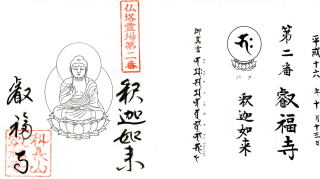 平成十六年十月十三日
第二番 叡福寺
バク
釈迦如来
御真言
仏塔霊場第二番
釈迦如来
叡福寺
科長山